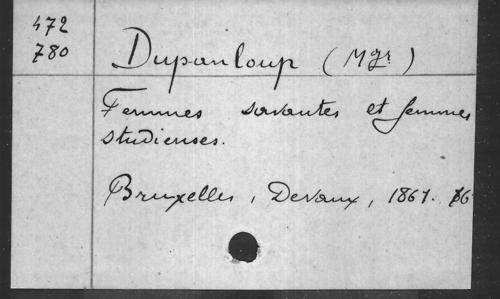 472
780
Dupanloup (Mgr)
Femmes savantes et femmes
studieuses.
Bruxelles, Devaux, 1867.